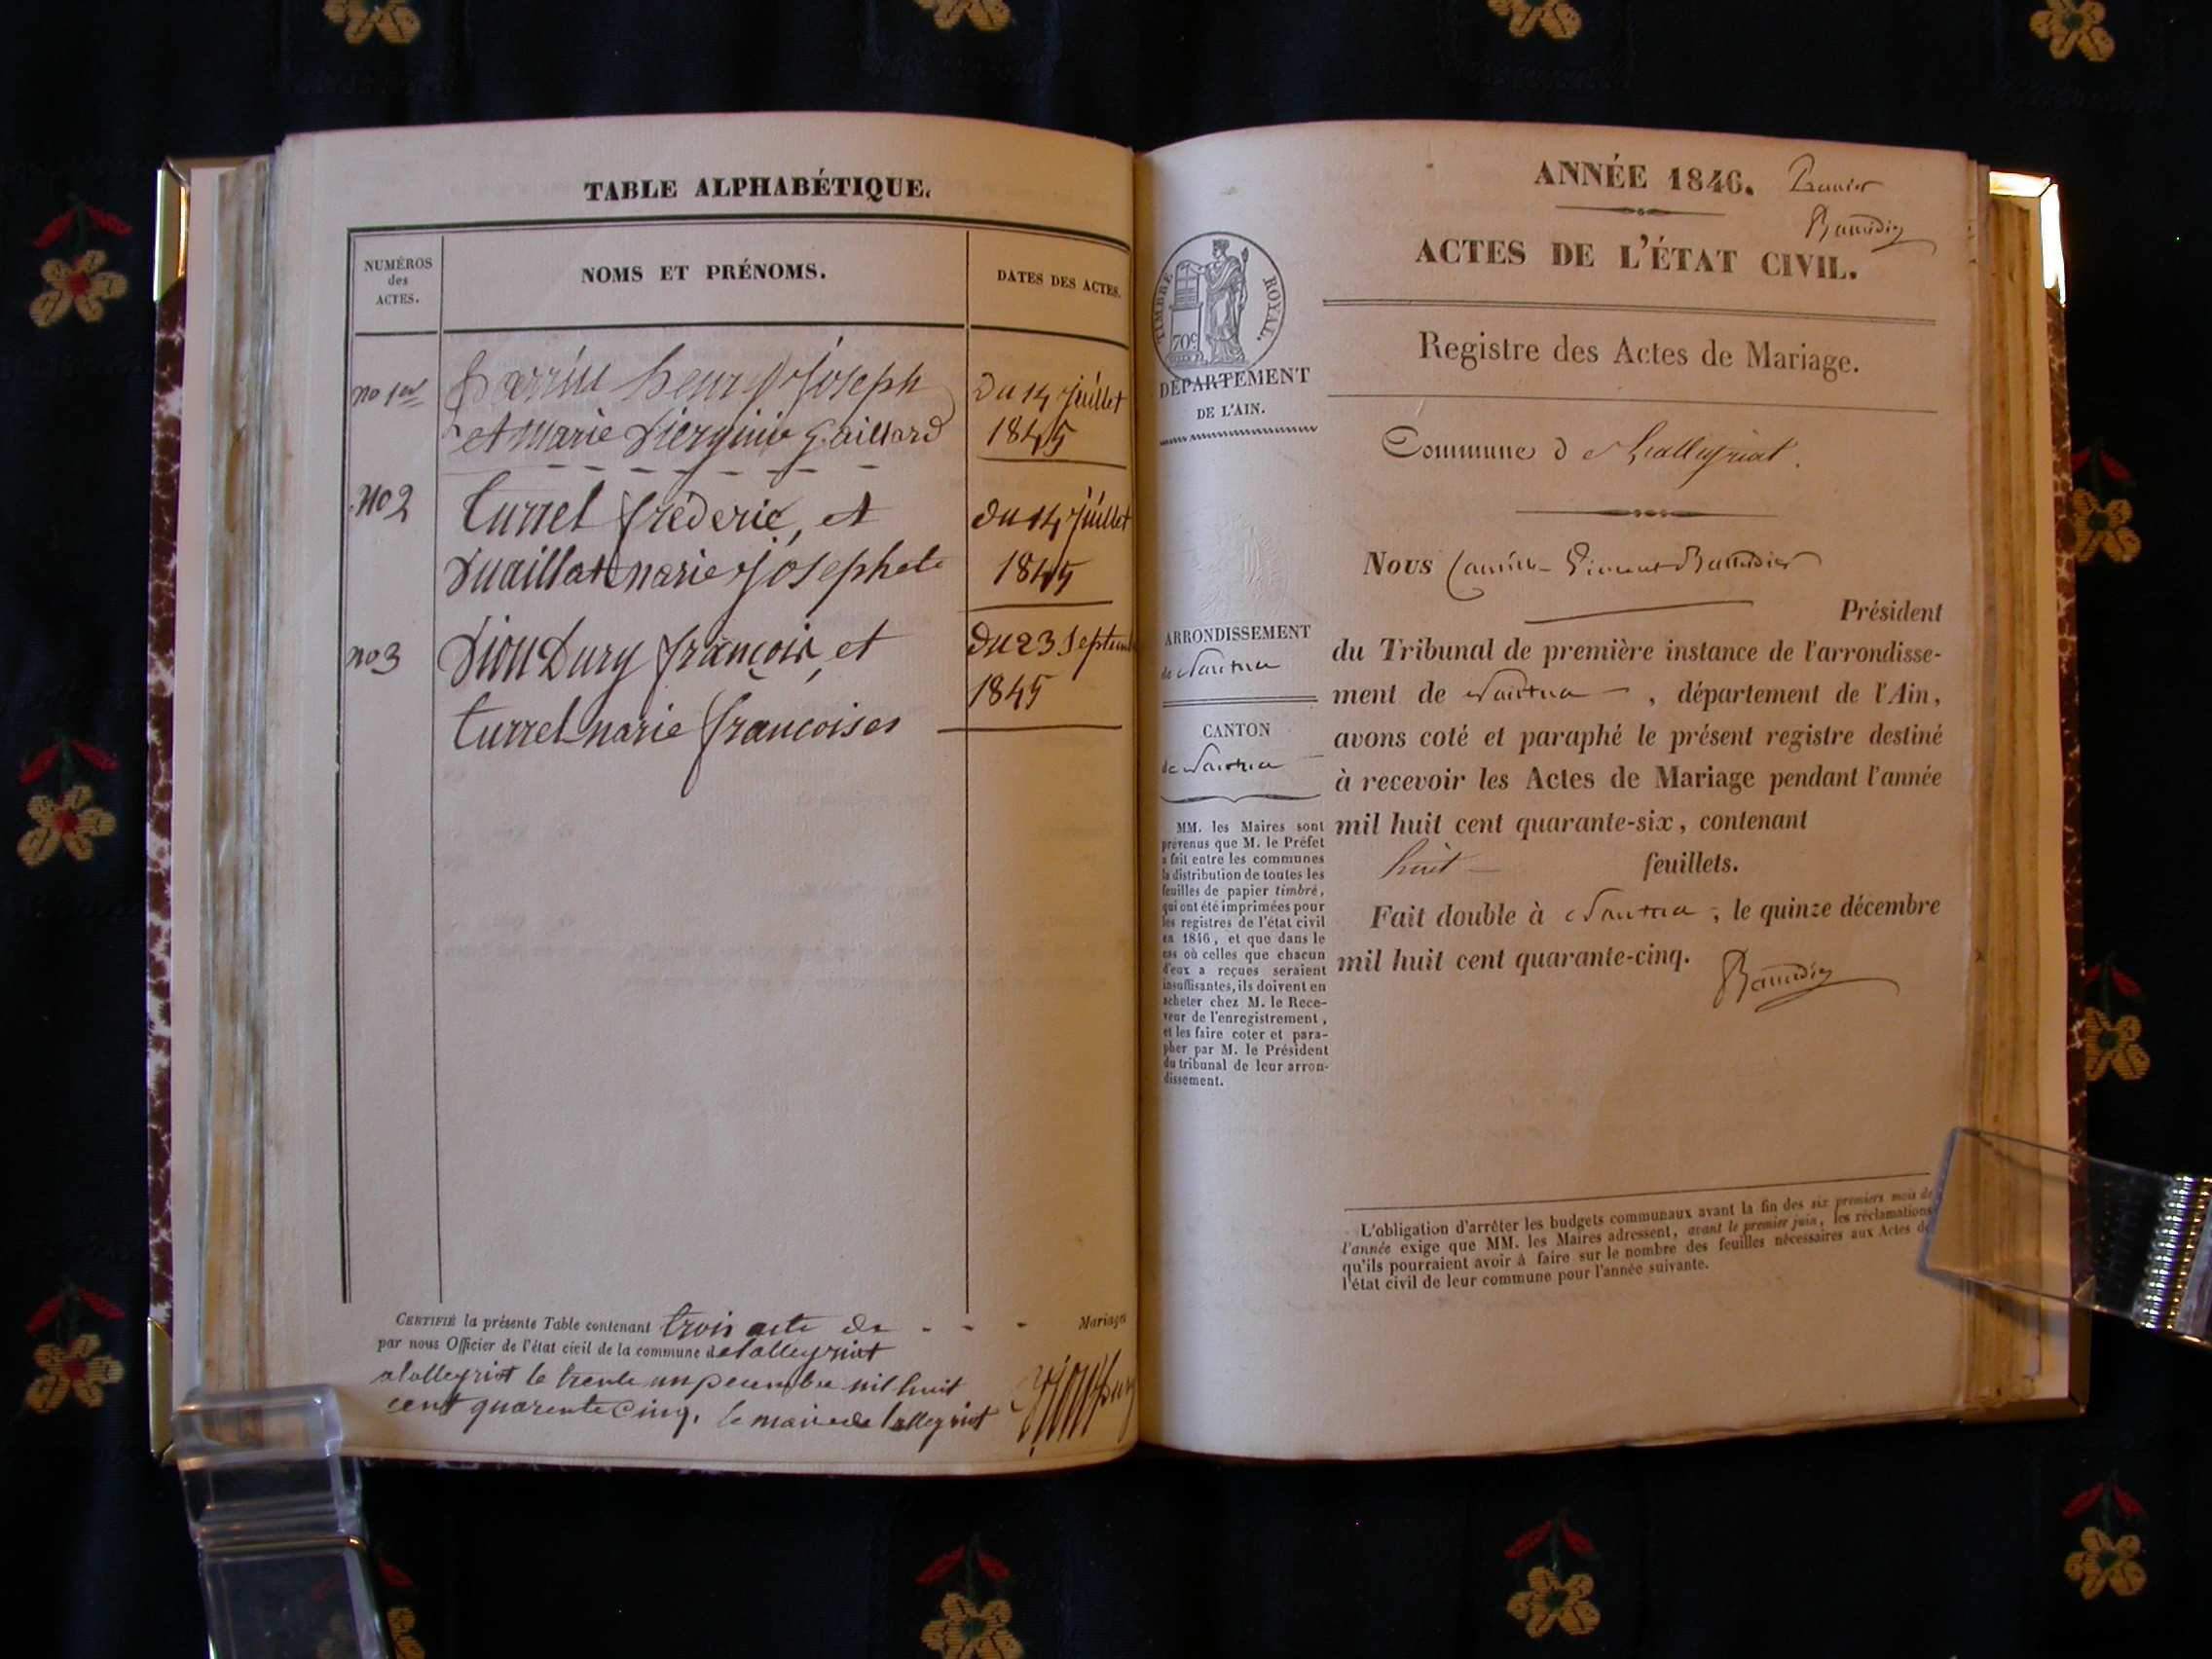 TABLE ALPHABÉTIQUE.
NUMÉROS
des
ACTES.
NOMS ET PRÉNOMS.
DATES DES ACTES.
no 1er
henry joseph
Du 14 juillet
et marie gaillard
1845
no 2
turrel fréderic, et
du 14 juillet
marie josephete
1845
no 3
françois, et
Du 23 Septem
turrel marie francoises
1845
CERTIFIÉ la présente Table contenant trois acte de - - - Mariages
par nous Officier de l'état civil de la commune de lalleyriat
a lalleyriat le trente un Decembre mil huit
cent quarente cinq. le maire de lalleyriat
ANNÉE 1846.
ACTES DE L'ÉTAT CIVIL.
TIMBRE ROYAL.
70c
Registre des Actes de Mariage.
DÉPARTEMENT
DE L'AIN.
Commune de Lalleyriat.
Nous
Président
du Tribunal de première instance de l'arrondisse-
ment de Nantua, département de l'Ain,
avons coté et paraphé le présent registre destiné
à recevoir les Actes de Mariage pendant l'année
mil huit cent quarante-six, contenant
huit feuillets.
Fait double à Nantua, le quinze décembre
mil huit cent quarante-cinq.
ARRONDISSEMENT
de Nantua
CANTON
de Nantua
MM. les Maires sont
prévenus que M. le Préfet
a fait entre les communes
la distribution de toutes les
feuilles de papier timbré,
qui ont été imprimées pour
les registres de l'état civil
en 1846, et que dans le
cas où celles que chacun
d'eux a reçues seraient
insuffisantes, ils doivent en
acheter chez M. le Rece-
veur de l'enregistrement,
et les faire coter et para-
pher par M. le Président
du tribunal de leur arron-
dissement.
L'obligation d'arrêter les budgets communaux avant la fin des six premiers mois de
l'année exige que MM. les Maires adressent, avant le premier juin, les réclamations
qu'ils pourraient avoir à faire sur le nombre des feuilles nécessaires aux Actes de
l'état civil de leur commune pour l'année suivante.